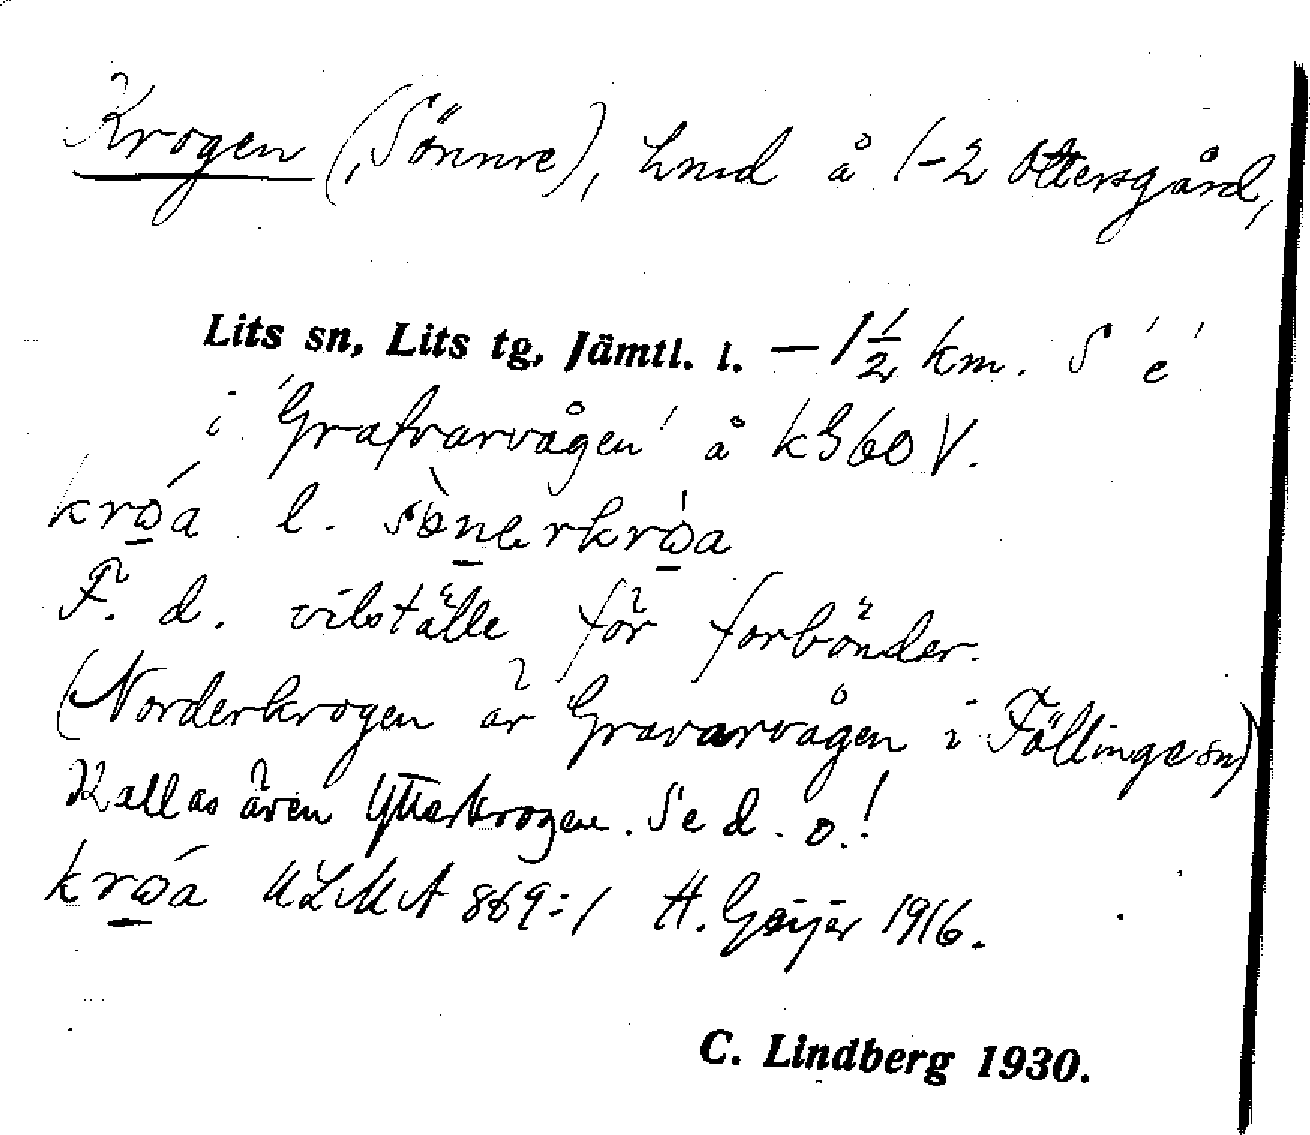 Krogen (, Sönnre), hmd å 1-2 Ottersgård,
Lits sn, Lits tg, Jämtl. l. — 1½ km. S 'e'
i 'Grafvarvågen' å kG60V.
króa l. sònerkróa
F. d. vilställe för forbönder.
(Norderkrogen är Gravarvågen i Föllinge sn)
Kallas även Ytterkrogen. Se d. o.!
króa ULMA 869:1 H. Geijer 1916.
C. Lindberg 1930.